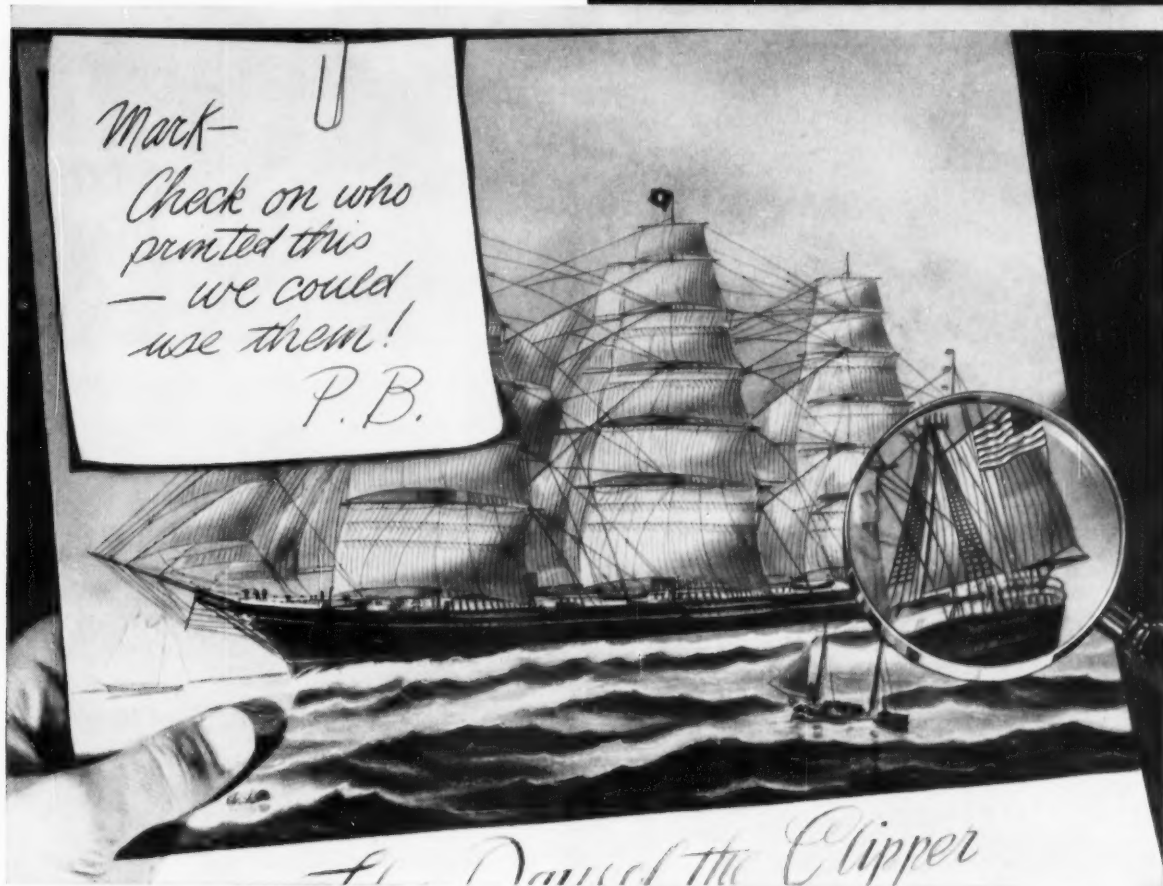 Mark—
Check on who
printed this
— we could
use them!
P. B.
the Days of the Clipper